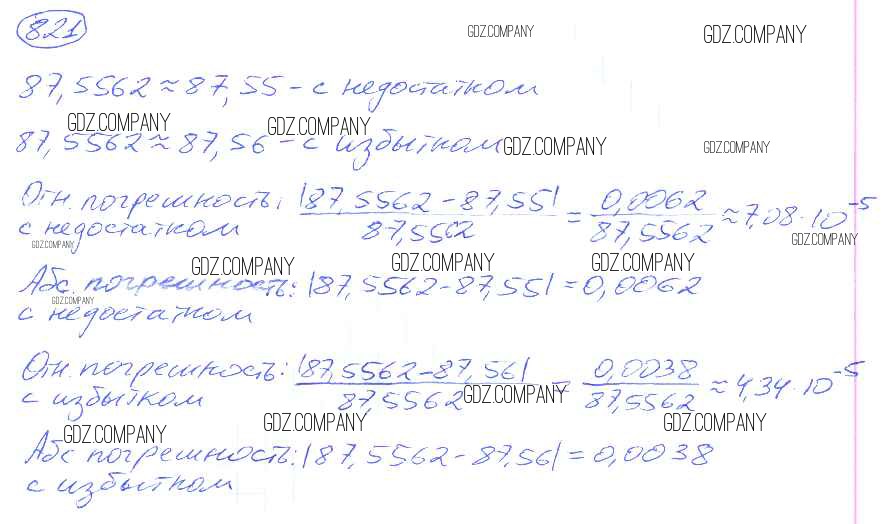 821
GDZ.COMPANY GDZ.COMPANY
87,5562 ≈ 87,55 - с недостатком
GDZ.COMPANY GDZ.COMPANY
87,5562 ≈ 87,56 - с избытком GDZ.COMPANY GDZ.COMPANY
Отн. погрешность: |87,5562 - 87,55| / 87,5562 = 0,0062 / 87,5562 ≈ 7,08 · 10^-5
с недостатком
GDZ.COMPANY GDZ.COMPANY
GDZ.COMPANY GDZ.COMPANY GDZ.COMPANY
Абс. погрешность: |87,5562 - 87,55| = 0,0062
GDZ.COMPANY
с недостатком
Отн. погрешность: |87,5562 - 87,56| / 87,5562 = 0,0038 / 87,5562 ≈ 4,34 · 10^-5
с избытком GDZ.COMPANY
GDZ.COMPANY GDZ.COMPANY GDZ.COMPANY
Абс погрешность: |87,5562 - 87,56| = 0,0038
с избытком